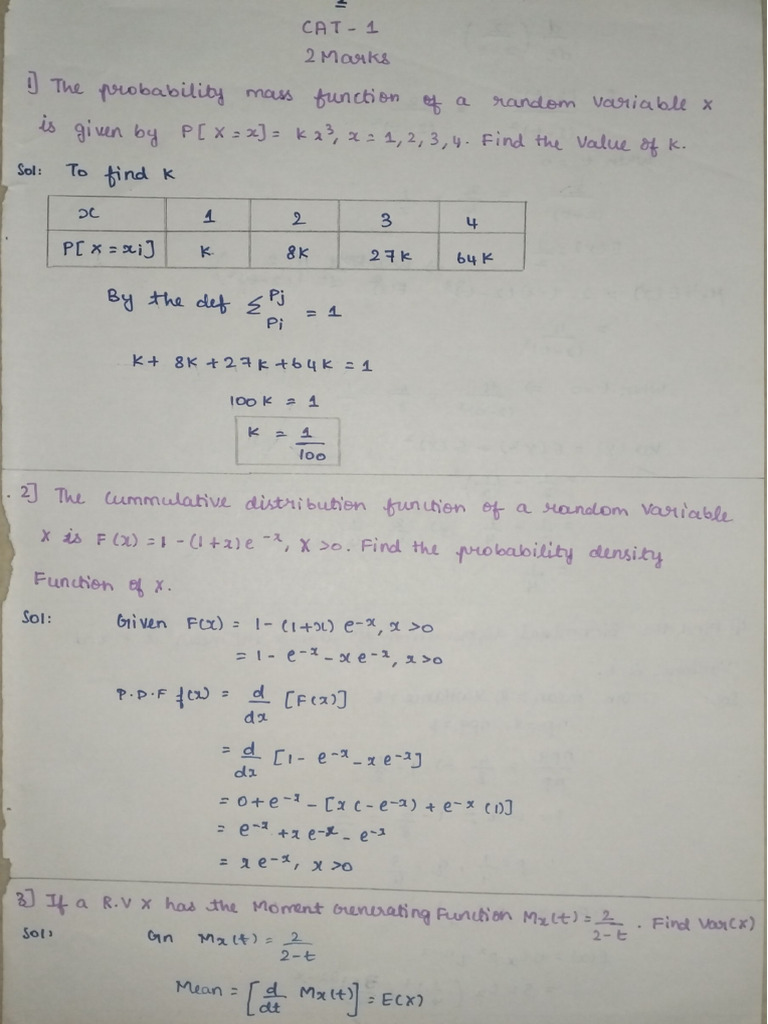 CAT - 1
2 Marks
1] The probability mass function of a random variable x
is given by P[X = x] = Kx³, x = 1, 2, 3, 4. Find the Value of K.
Sol: To find K
x 1 2 3 4
P[X = xi] K 8K 27K 64K
By the def Σ Pj Pi = 1
K + 8K + 27K + 64K = 1
100K = 1
K = 1/100
2] The Cummulative distribution function of a random Variable
X is F(x) = 1 - (1+x)e^-x, X >0. Find the probability density
Function of X.
Sol: Given F(x) = 1 - (1+x) e^-x, x >0
= 1 - e^-x - xe^-x, x>0
P.D.F f(x) = d/dx [F(x)]
= d/dx [1 - e^-x - xe^-x]
= 0 + e^-x - [x(-e^-x) + e^-x (1)]
= e^-x + xe^-x - e^-x
= xe^-x, x >0
3] If a R.V X has the Moment Generating Function Mx(t) = 2/2-t . Find Var(X)
Sol: Gn Mx(t) = 2/2-t
Mean = [d/dt Mx(t)] = E(X)